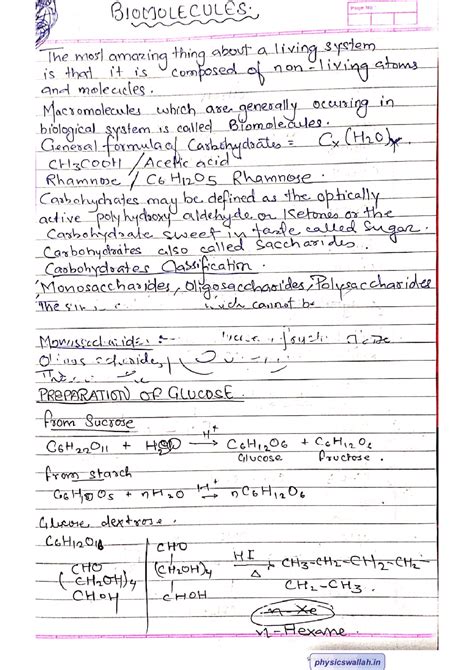 BIOMOLECULES.
Page No
The most amazing thing about a living system
is that it is composed of non-living atoms
and molecules.
Macromolecules which are generally occuring in
biological system is called Biomolecules.
General formula of Carbohydrates = Cx(H2O)y
CH3COOH / Acetic acid
Rhamnose / C6H12O5 Rhamnose.
Carbohydrates may be defined as the optically
active polyhydroxy aldehyde or Ketones or the
Carbohydrate sweet in taste called Sugar.
Carbohydrates also called Saccharides.
Carbohydrates Classification.
Monosaccharides, Oligosaccharides, Polysaccharides
The which cannot be
PREPARATION OF GLUCOSE
from Sucrose
C6H22O11 + H2O H+ → C6H12O6 + C6H12O6
Glucose Fructose.
from starch
C6H10O5 + nH2O H+ → nC6H12O6
Glucose dextrose.
C6H12O6
CHO CHO
(CH2OH)4 (CH2OH)4 HI Δ → CH3-CH2-CH2-CH2-
CHOH CHOH CH2-CH3.
n-Xe
n-Hexane.
physicswallah.in